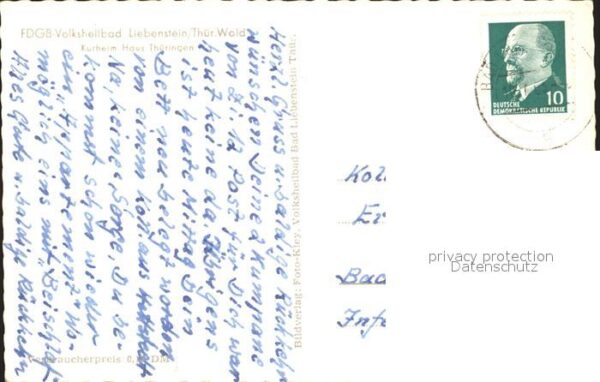 FDGB-Volksheilbad Liebenstein/Thür. Wald
Kurheim Haus Thüringen
Herzl. Gruss u. baldige Rückkehr
wünschen Deine Kumpane
von Z. 12 Post für Dich war
heut keine da. Übrigens
ist heute Mittag Dein
Bett neu belegt worden
von einem Koll. aus
Na, keine Sorge, Du be-
kommst schon wieder
ein "Appartement" wo-
möglich eins mit "Beischlaf"
Alles Gute u. baldige Rückkehr
Bildverlag: Foto-Kley, Volksheilbad Bad Liebenstein Thür.
Verbraucherpreis 0, DM
10
DEUTSCHE
DEMOKRATISCHE REPUBLIK
BA
Kol
Er
Bad
Inf
privacy protection
Datenschutz